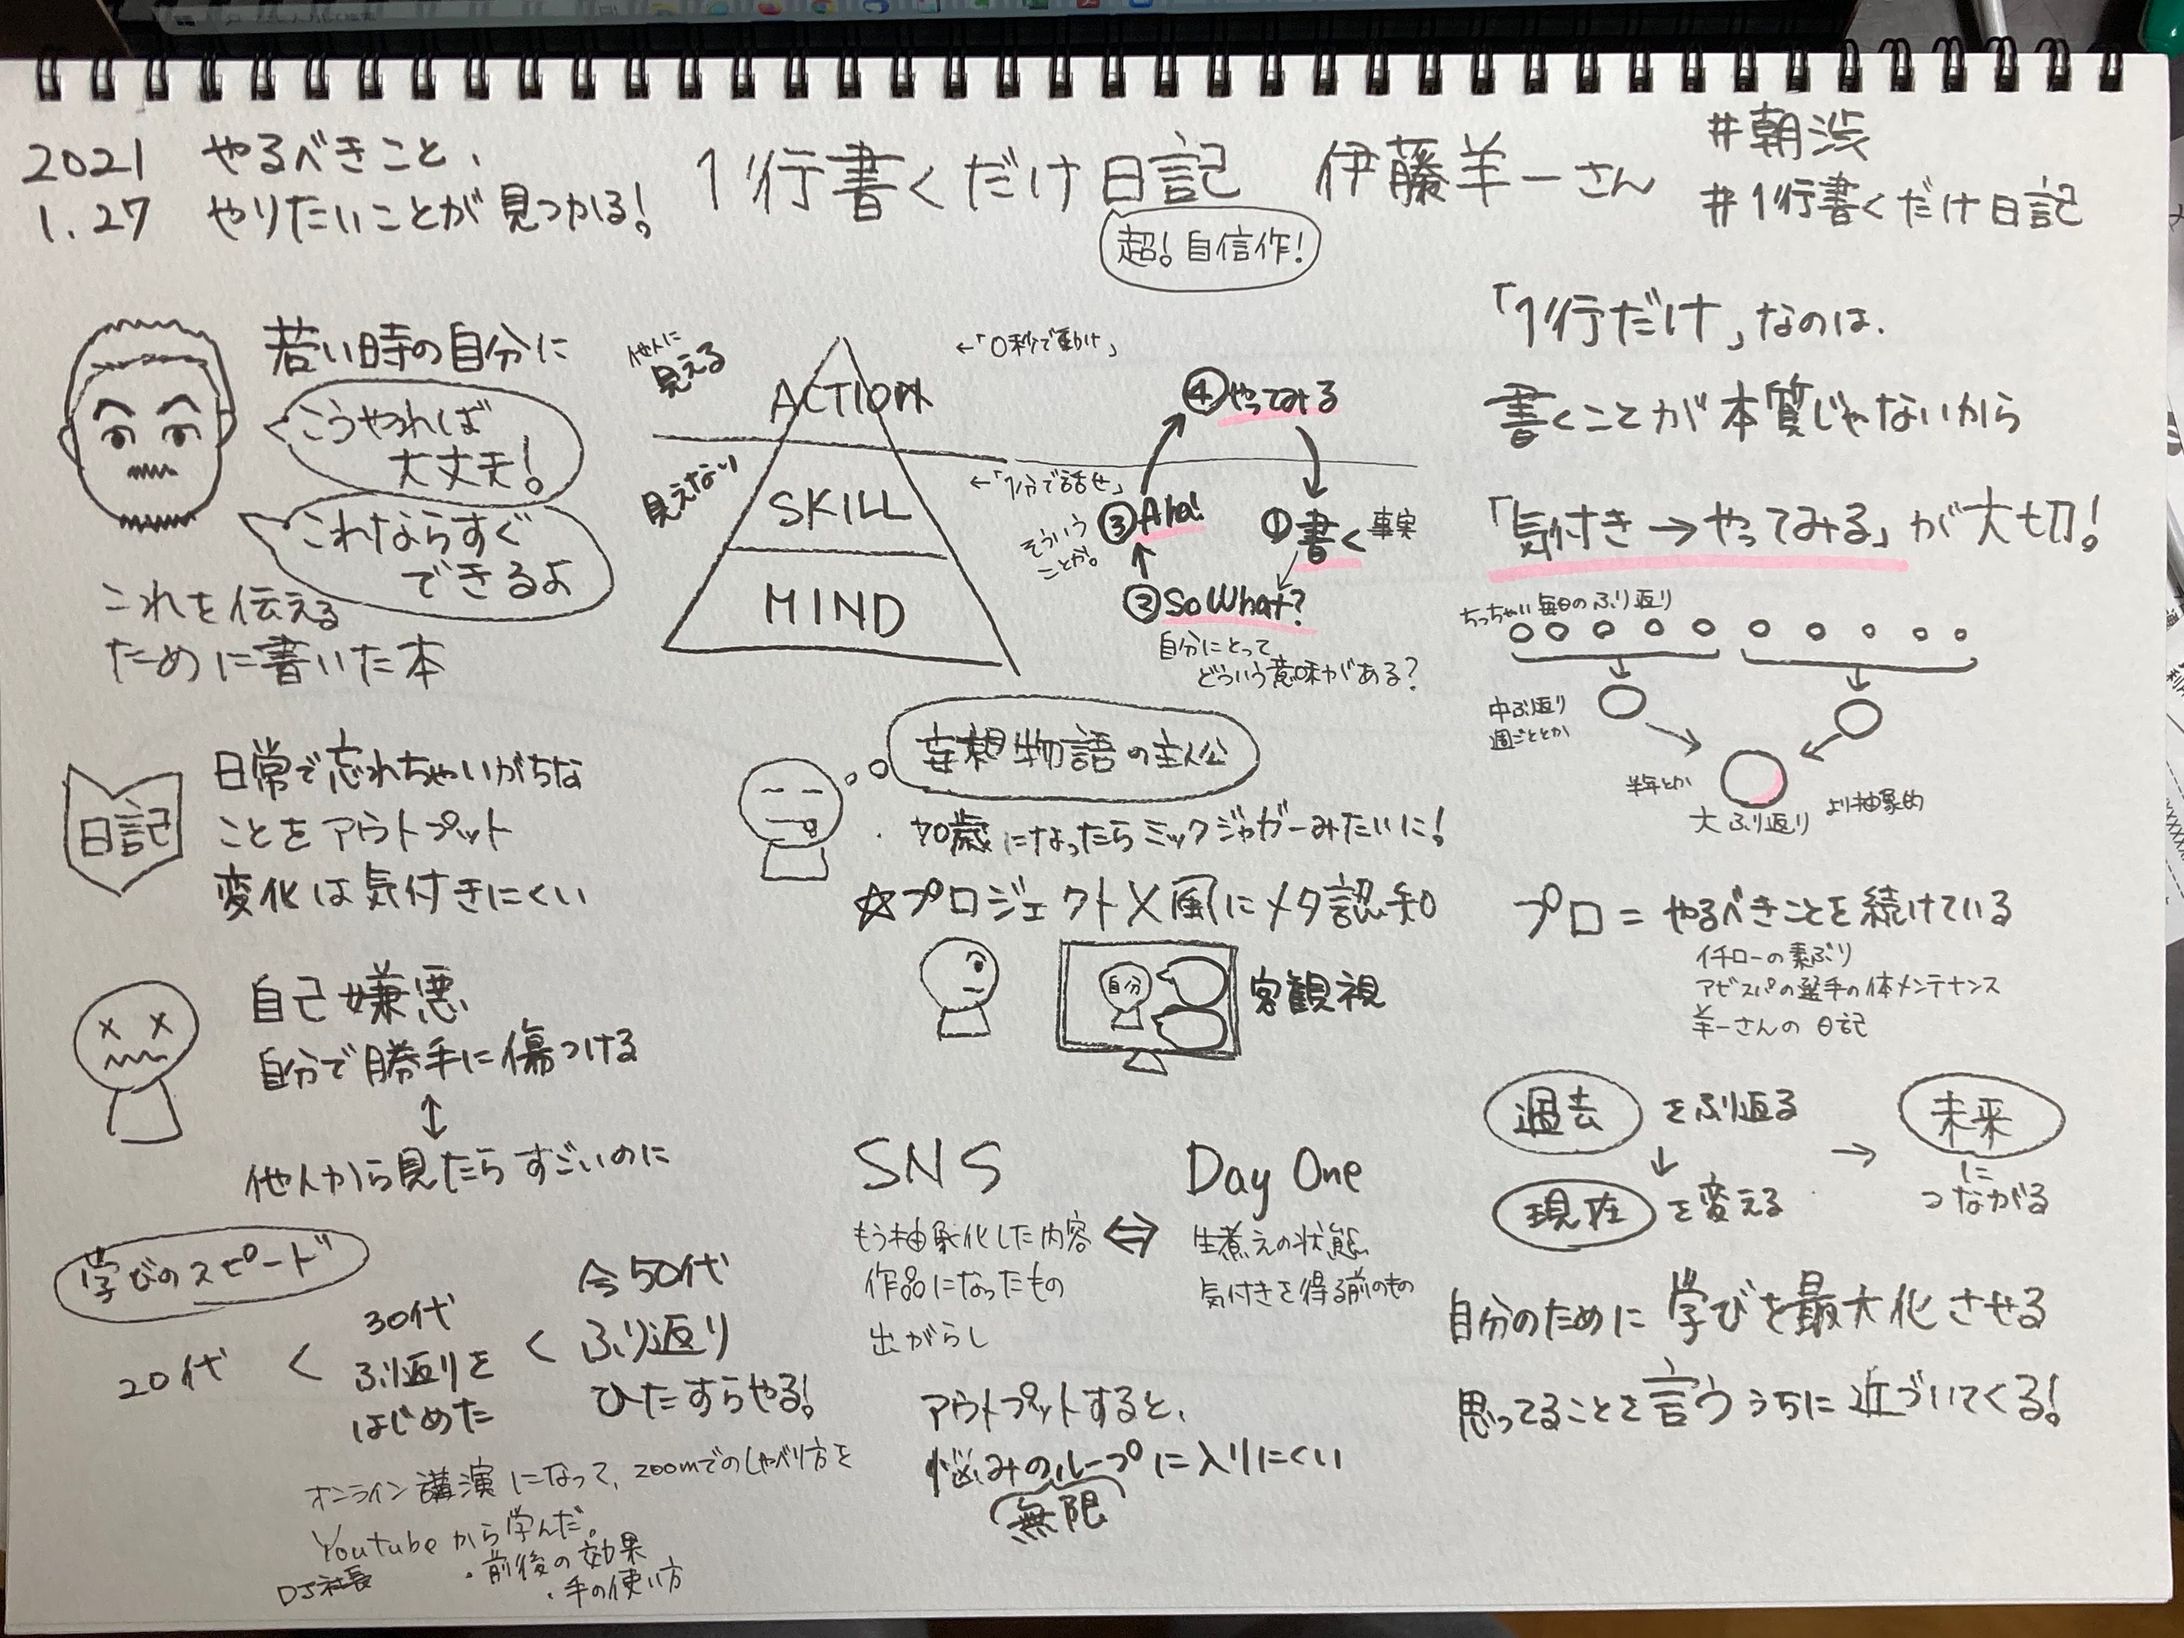 2021
1.27
やるべきこと、
やりたいことが見つかる!
1行書くだけ日記
伊藤羊一さん
#朝渋
#1行書くだけ日記
超!自信作!
若い時の自分に
こうやれば
大丈夫!
これならすぐ
できるよ
これを伝える
ために書いた本
他人に
見える
見えない
ACTION
SKILL
MIND
←「0秒で動け」
←「1分で話せ」
④やってみる
③Aha!
そういう
ことか。
①書く 事実
②So What?
自分にとって
どういう意味がある?
「1行だけ」なのは、
書くことが本質じゃないから
「気付き→やってみる」が大切!
ちっちゃい毎日のふり返り
中ぶり返り
週ごととか
半年とか
大ふり返り
より抽象的
日記
日常で忘れちゃいがちな
ことをアウトプット
変化は気付きにくい
妄想物語の主人公
・70歳になったらミックジャガーみたいに!
☆プロジェクトX風にメタ認知
自分
客観視
プロ=やるべきことを続けている
イチローの素ぶり
アビスパの選手の体メンテナンス
羊一さんの日記
自己嫌悪
自分で勝手に傷つける
↕
他人から見たらすごいのに
過去をふり返る
↓
現在を変える
→
未来
に
つながる
SNS
もう抽象化した内容
作品になったもの
出がらし
⇔
Day One
生煮えの状態
気付きを得る前のもの
学びのスピード
20代
<
30代
ふり返りを
はじめた
<
今50代
ふり返り
ひたすらやる!
オンライン講演になって、zoomでのしゃべり方を
Youtubeから学んだ。
DJ社長
・前後の効果
・手の使い方
アウトプットすると、
悩みのループに入りにくい
無限
自分のために学びを最大化させる
思ってることを言ううちに近づいてくる!